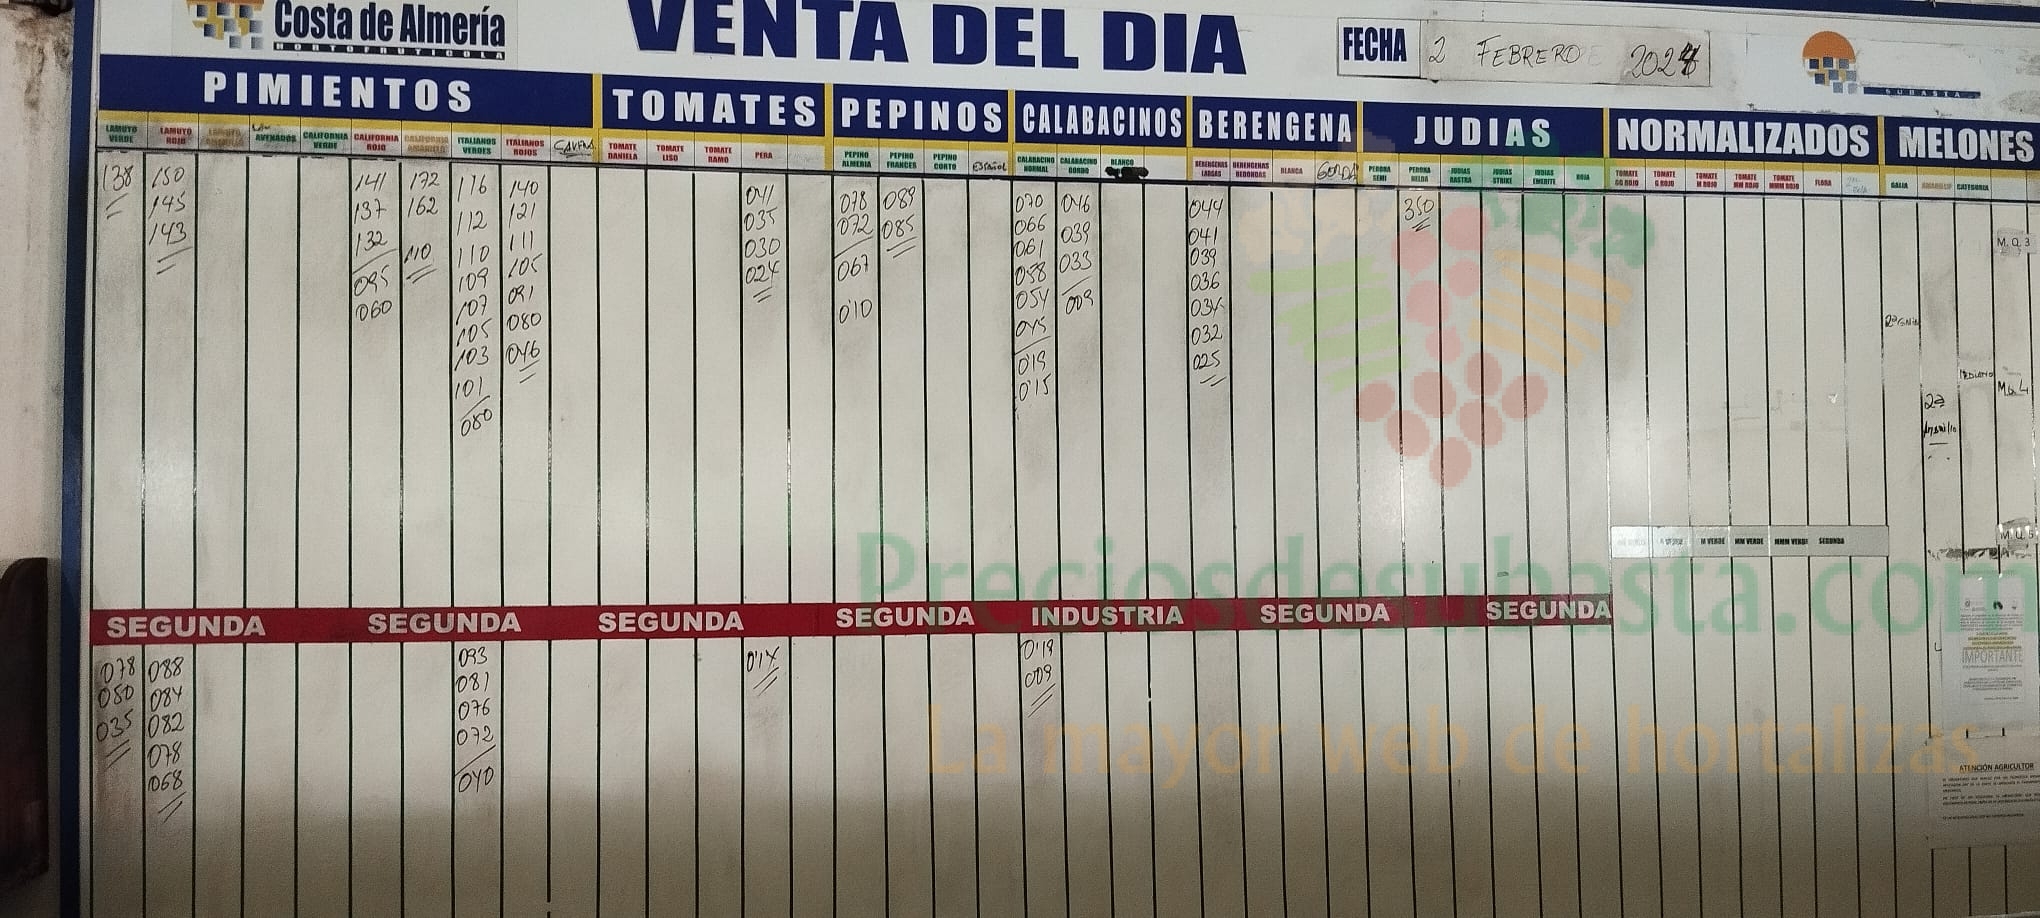 Costa de Almería
HORTOFRUTICOLA
VENTA DEL DIA
FECHA 2 FEBRERO 2024
SUBASTA
PIMIENTOS TOMATES PEPINOS CALABACINOS BERENGENA JUDIAS NORMALIZADOS MELONES
LAMUYO VERDE
LAMUYO ROJO
LAMUYO AMARILLO
AVENADOS
CALIFORNIA VERDE
CALIFORNIA ROJO
CALIFORNIA AMARILLO
ITALIANOS VERDES
ITALIANOS ROJOS
TOMATE DANIELA
TOMATE LISO
TOMATE RAMO
PERA
PEPINO ALMERIA
PEPINO FRANCES
PEPINO CORTO
ESPAÑOL
CALABACINO NORMAL
CALABACINO GORDO
BLANCO
BERENGENAS LARGAS
BERENGENAS REDONDAS
BLANCA
GORDA
PERONA SEMI
PERONA
JUDIAS RASTRA
JUDIAS STRIKE
JUDIAS EMERITE
ROJA
TOMATE GG ROJO
TOMATE G ROJO
TOMATE M ROJO
TOMATE MM ROJO
TOMATE MMM ROJO
FLORA
GALIA
AMARILLO
CATEGORIA
138
150
145
143
141
137
132
095
060
172
162
110
116
112
110
109
107
105
103
101
080
140
121
111
105
091
080
046
041
035
030
024
078
072
067
0'10
089
085
070
066
061
058
054
045
0'19
0'15
046
039
033
009
044
041
039
036
034
032
025
350
M. Q. 3
MEDIANO
2ª
M VERDE MM VERDE MMM VERDE SEGUNDA
SEGUNDA SEGUNDA SEGUNDA SEGUNDA INDUSTRIA SEGUNDA SEGUNDA
078
050
035
088
084
082
078
068
093
081
076
072
040
0'14
0'19
009
IMPORTANTE
ATENCIÓN AGRICULTOR
Preciosdesubasta.com
La mayor web de hortalizas